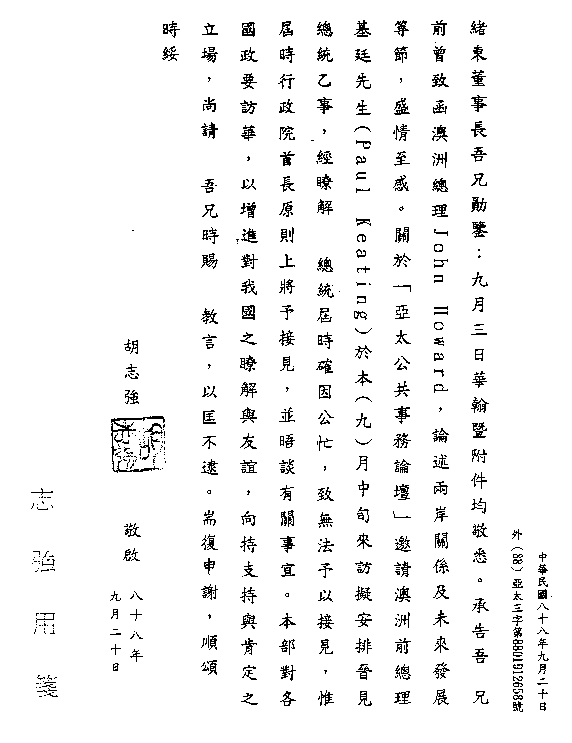 中華民國八十八年九月二十日
外（88）亞太三字第8801912658號
緒東董事長吾兄勛鑒：九月三日華翰暨附件均敬悉。承告吾　兄
前曾致函澳洲總理John Howard，論述兩岸關係及未來發展
等節，盛情至感。關於「亞太公共事務論壇」邀請澳洲前總理
基廷先生(Paul Keating)於本（九）月中旬來訪擬安排晉見
總統乙事，經瞭解　總統屆時確因公忙，致無法予以接見，惟
屆時行政院首長原則上將予接見，並晤談有關事宜。本部對各
國政要訪華，以增進對我國之瞭解與友誼，向持支持與肯定之
立場，尚請　吾兄時賜　教言，以匡不逮。耑復申謝，順頌
時綏
胡志強　敬啟　八十八年
九月二十日
志強用箋